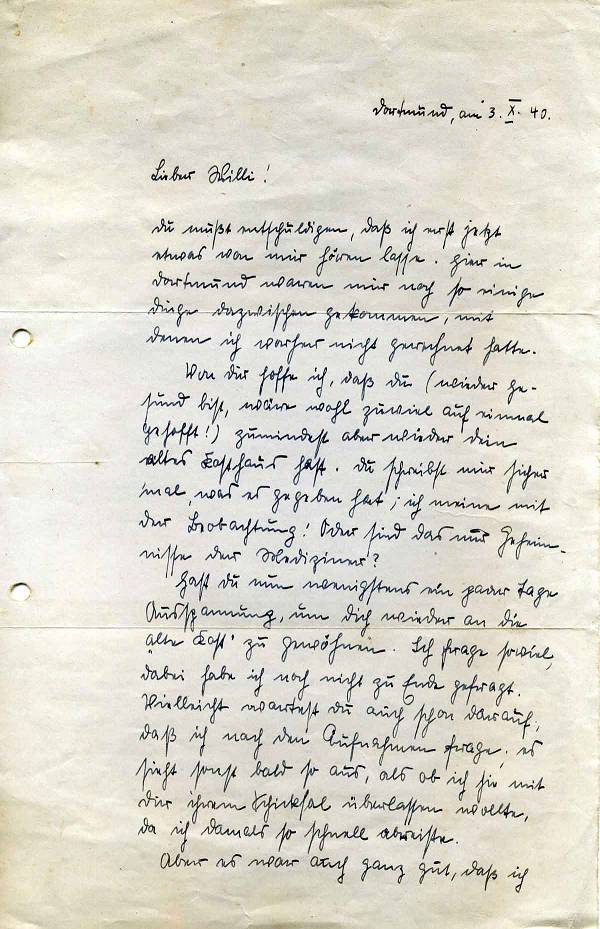 Dortmund, am 3. X. 40.
Lieber Willi!
Du mußt entschuldigen, daß ich erst jetzt
etwas von mir hören lasse. Hier in
Dortmund waren mir noch so einige
Dinge dazwischen gekommen, mit
denen ich vorher nicht gerechnet hatte.
Von Dir hoffe ich, daß Du (wieder ge-
sund bist, wäre wohl zuviel auf einmal
gehofft!) zumindest aber wieder dein
altes Kosthaus hast. Du schreibst mir sicher
mal, was es gegeben hat; ich meine mit
der Beobachtung! Oder sind das nur Geheim-
nisse der Mediziner?
Hast Du nun wenigstens ein paar Tage
Ausspannung, um Dich wieder an die
„alte Kost“ zu gewöhnen. Ich frage soviel,
dabei habe ich noch nicht zu Ende gefragt.
Vielleicht wartest Du auch schon darauf,
daß ich nach den Aufnahmen frage, es
sieht sonst bald so aus, als ob ich sie mit
Dir ihrem Schicksal überlassen wollte,
da ich damals so schnell abreiste.
Aber es war auch ganz gut, daß ich